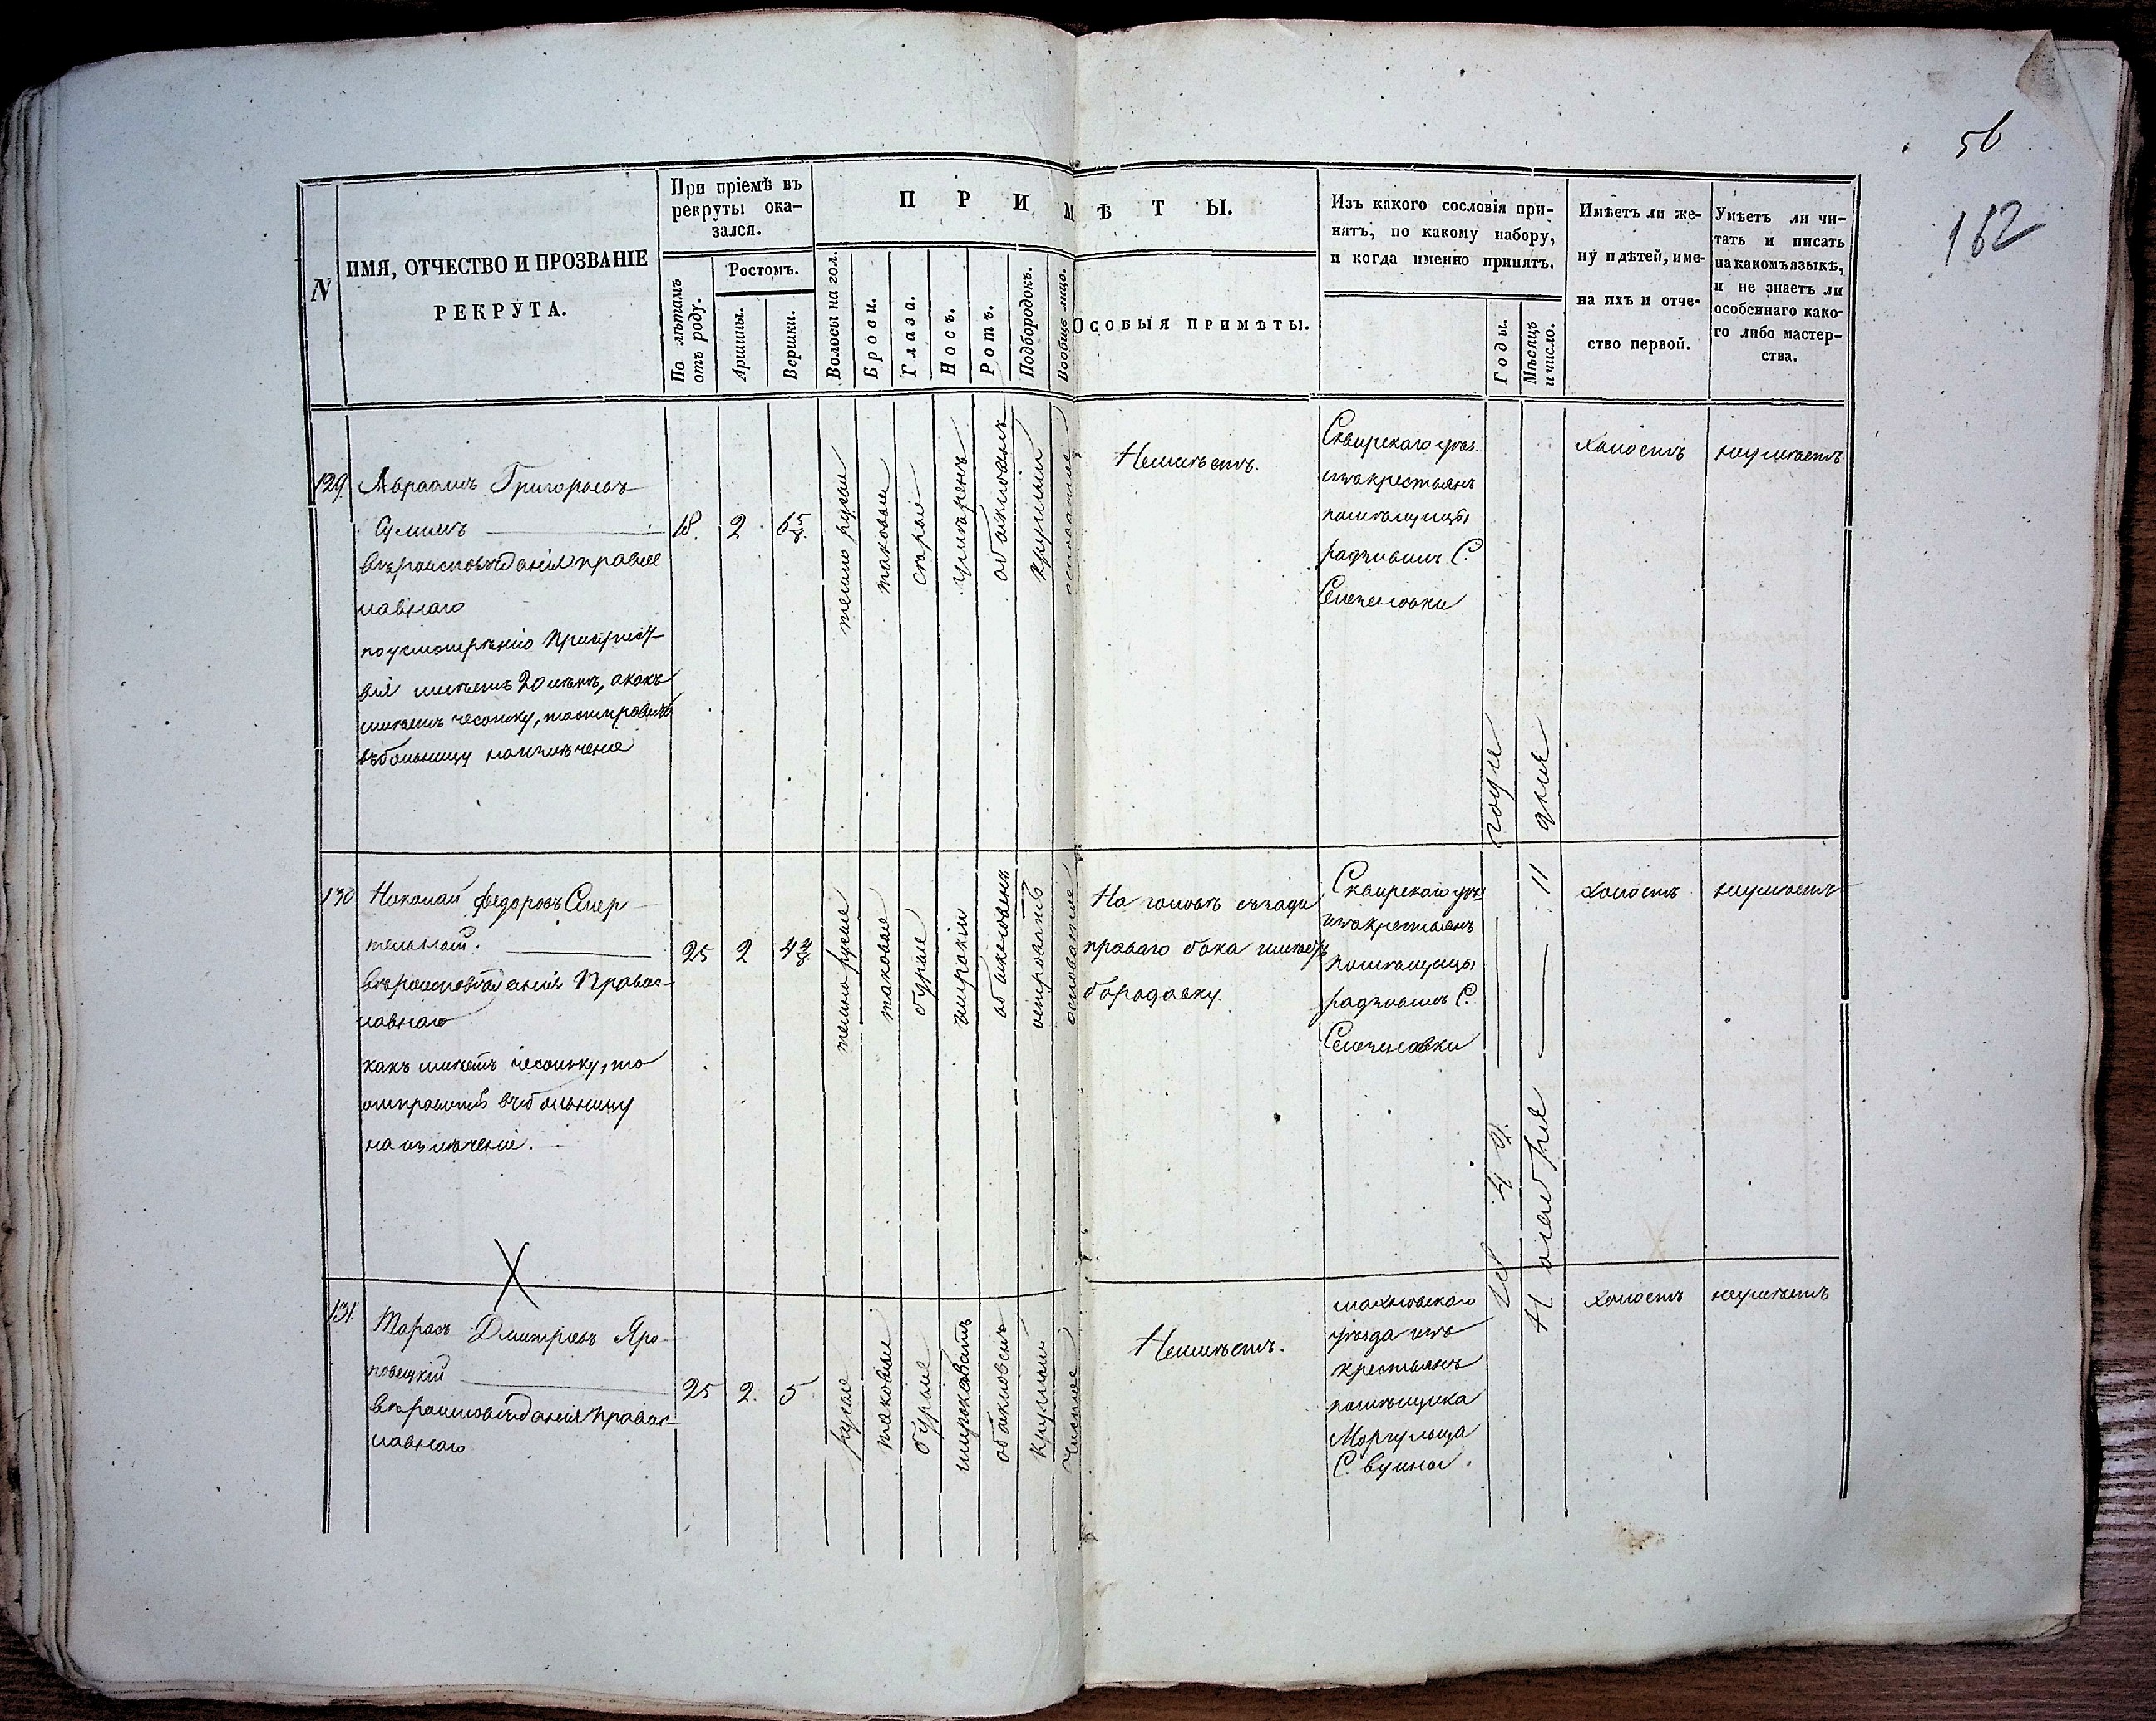 56
162
N
ИМЯ, ОТЧЕСТВО И ПРОЗВАНІЕ
РЕКРУТА.
При пріемѣ въ
рекруты ока-
зался.
По лѣтамъ
отъ роду.
Ростомъ.
Аршины.
Вершки.
ПРИМѢТЫ.
Волосы на гол.
Брови.
Глаза.
Носъ.
Ротъ.
Подбородокъ.
Вообще лицо.
ОСОБЫЯ ПРИМѢТЫ.
Изъ какого сословія при-
нятъ, по какому набору,
и когда именно принятъ.
Годы.
Мѣсяцъ
и число.
Имѣетъ ли же-
ну и дѣтей, име-
на ихъ и отче-
ство первой.
Умѣетъ ли чи-
тать и писать
на какомъ языкѣ,
и не знаетъ ли
особеннаго како-
го либо мастер-
ства.
129.
Авраамъ Григорьевъ
вѣроисповѣданія правос
лавнаго
по усмотрѣнію
имѣетъ 20 лѣтъ, а какъ
имѣетъ чесотку, то отправить
въ больницу на излѣченіе
18.
2
6 5/8.
темно русыя
таковыя
сѣрыя
умѣренъ
обыкновенъ
круглый
Неимѣетъ.
Сквирскаго уѣз.
изъ крестьянъ
помѣщицы
радзивилъ С.
холостъ
неумѣетъ
130
Николай Федоровъ Смер
тельный.
вѣроисповѣданія Правос-
лавнаго
какъ имѣетъ чесотку, то
отправить въ больницу
на излѣченіе.
25
2
4 4/8
темно русыя
таковыя
бурыя
широкій
обыкновенъ
островатъ
На головѣ съзади
праваго бока имѣетъ
бородавку.
Сквирскаго уѣз
изъ крестьянъ
помѣщицы
радзивилъ С.
холостъ
неумѣетъ
годя
11 дня
Ноября
131.
Тарасъ Дмитріевъ Яро-
повецкій
вѣроисповѣданія Правос-
лавнаго
25
2.
5
русыя
таковыя
бурыя
широковатъ
обыкновенъ
круглый
Чистое
Неимѣетъ.
махновскаго
уѣзда изъ
крестьянъ
помѣщика
С.
холостъ
неумѣетъ